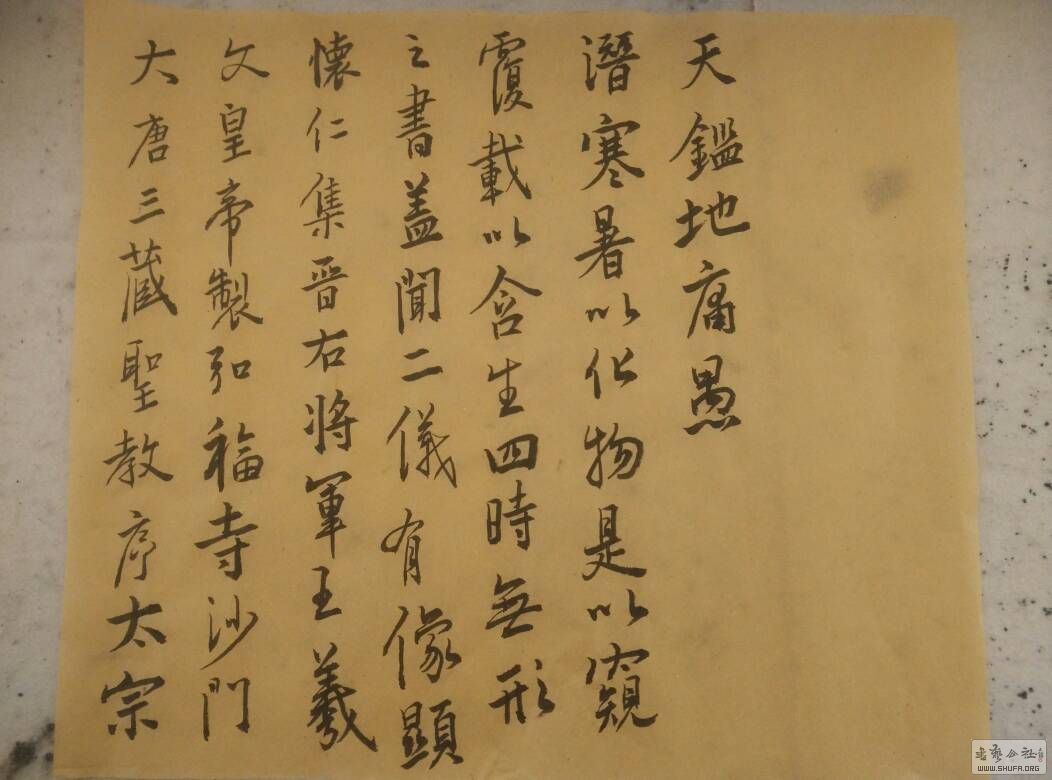 大唐三藏聖教序太宗
文皇帝製弘福寺沙門
懷仁集晋右將軍王羲
之書盖聞二儀有像顯
覆載以含生四時無形
潛寒暑以化物是以窺
天鑑地庸愚
书艺公社
WWW.SHUFA.ORG